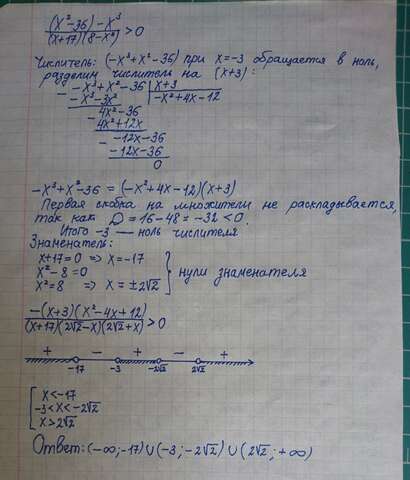 (x²-36)-x³ / (x+17)(8-x²) > 0
Числитель: (-x³+x²-36) при x=-3 обращается в ноль,
разделим числитель на (x+3):
-x³+x²-36 | x+3
-x³-3x² | -x²+4x-12
4x²-36
4x²+12x
-12x-36
-12x-36
0
-x³+x²-36 = (-x²+4x-12)(x+3)
Первая скобка на множители не раскладывается,
так как D=16-48=-32<0.
Итого -3 — ноль числителя
Знаменатель:
x+17=0 => x=-17
x²-8=0
x²=8 => x=±2√2
} нули знаменателя
-(x+3)(x²-4x+12) / (x+17)(2√2-x)(2√2+x) > 0
+ - + - +
-17 -3 -2√2 2√2
x<-17
-3<x<-2√2
x>2√2
Ответ: (-∞;-17)∪(-3;-2√2)∪(2√2;+∞)